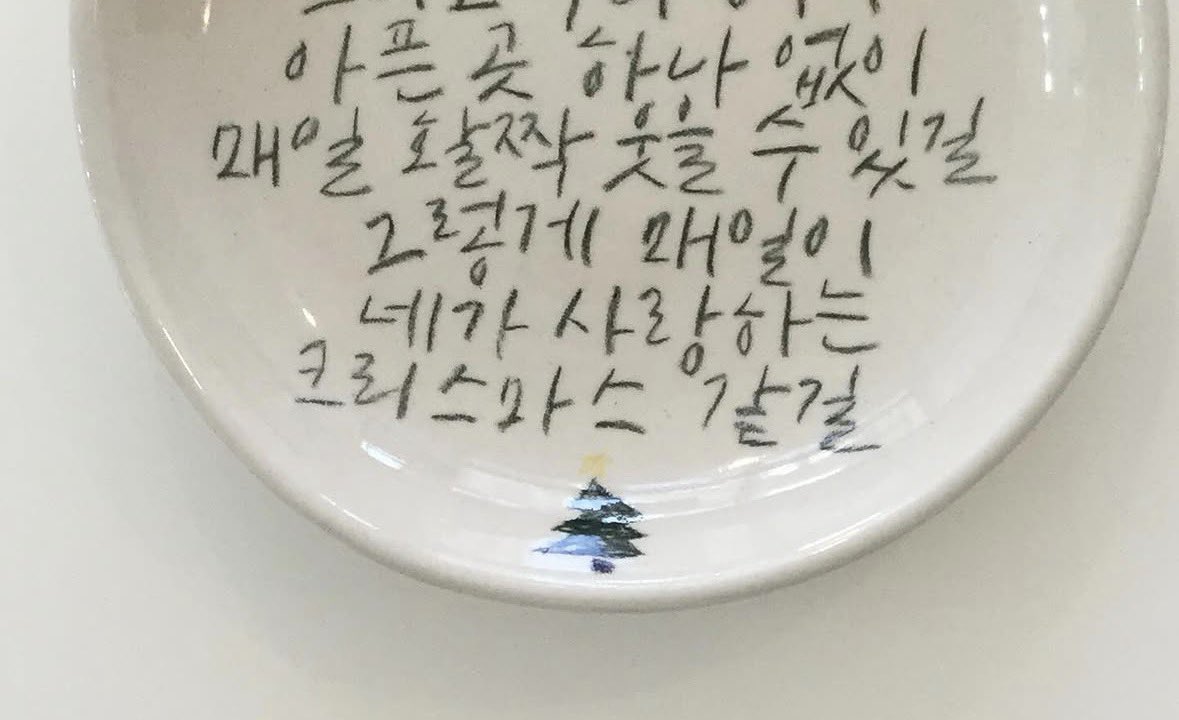 아픈 곳 하나 없이
매일 활짝 웃을 수 있길
그렇게 매일이
네가 사랑하는
크리스마스 같길